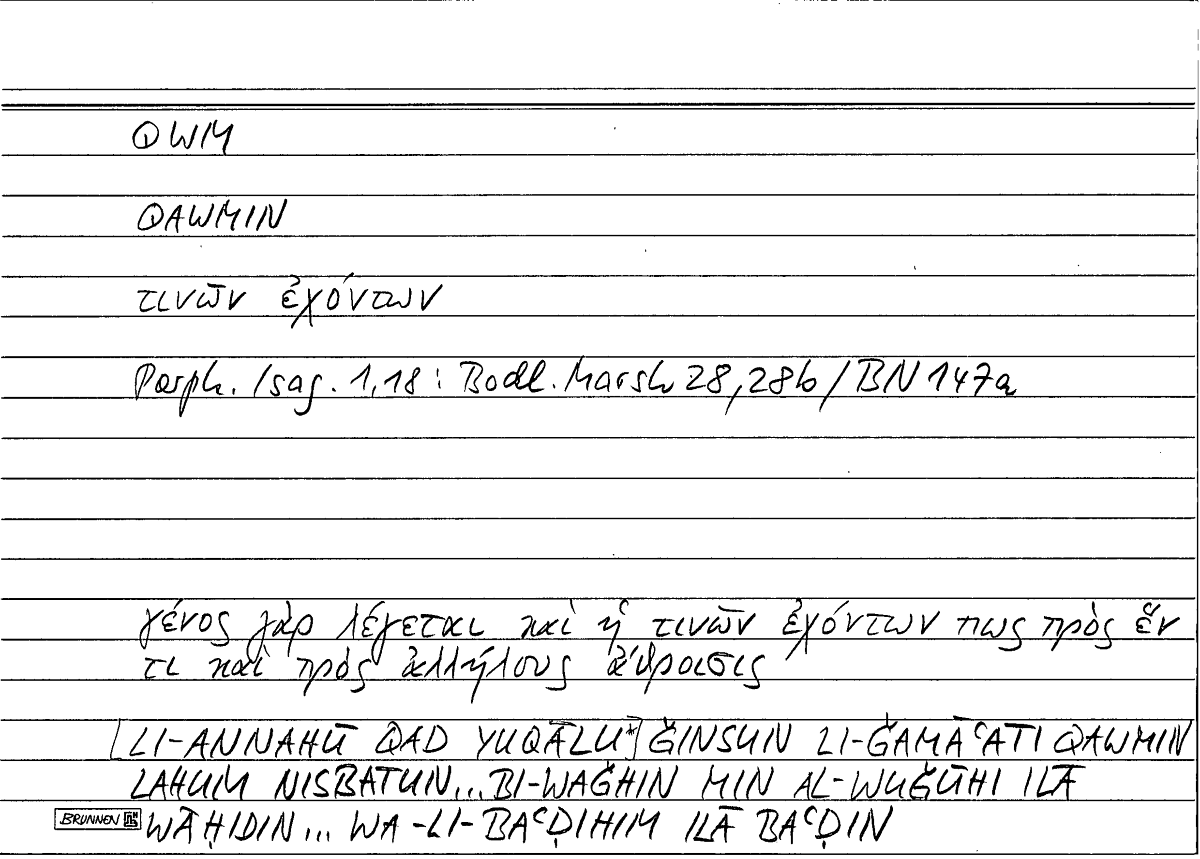 QWM
QAWMIN
τινῶν ἐχόντων
Porph. Isag. 1,18: Bodl. Marsh 28,28b/BN 147a
γένος γὰρ λέγεται καὶ ἡ τινῶν ἐχόντων πως πρὸς ἕν
τι καὶ πρὸς ἀλλήλους ἄθροισις
[LI-ANNAHŪ QAD YUQĀLU*] ǦINSUN LI-ǦAMĀʿATI QAWMIN
LAHUM NISBATUN... BI-WAǦHIN MIN AL-WUǦŪHI ILĀ
WĀḤIDIN... WA-LI-BAʿḌIHIM ILĀ BAʿḌIN
BRUNNEN